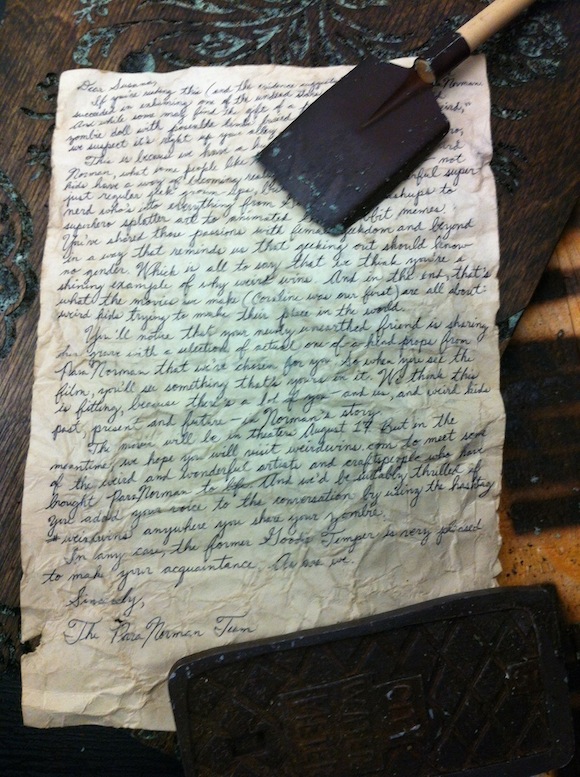 Dear Susana,
If you're reading this (and the evidence suggests
succeeded in exhuming one of the undead stars
And while some may find the gift of a
zombie doll with
we suspect it's right up your alley
This is because we have a
Norman, what some people like
kids have a way of becoming not
just regular
nerd who's into everything from to
superhero splatter art to animated memes.
You've shared those passions with and beyond
in a way that reminds us that geeking out should know
no gender. Which is all to say that we think you're a
shining example of why weird wins. And in the end, that's
what the movies we make (Coraline was our first) are all about:
weird kids trying to make their place in the world.
You'll notice that your newly unearthed friend is sharing
her grave with a selection of actual one-of-a-kind props from
ParaNorman that we've chosen for you. So when you see the
film, you'll see something that's yours in it. We think this
is fitting, because there's a lot of you - and us, and weird kids
past, present and future - in Norman's story.
The movie will be in theaters August 17. But in the
meantime, we hope you will visit weirdwins.com to meet some
of the weird and wonderful artists and craftspeople who have
brought ParaNorman to life. And we'd be suitably thrilled if
you added your voice to the conversation by using the hashtag
#weirdwins anywhere you share your zombie.
In any case, the former Goody Temper is very pleased
to make your acquaintance. As are we.
Sincerely,
The ParaNorman Team